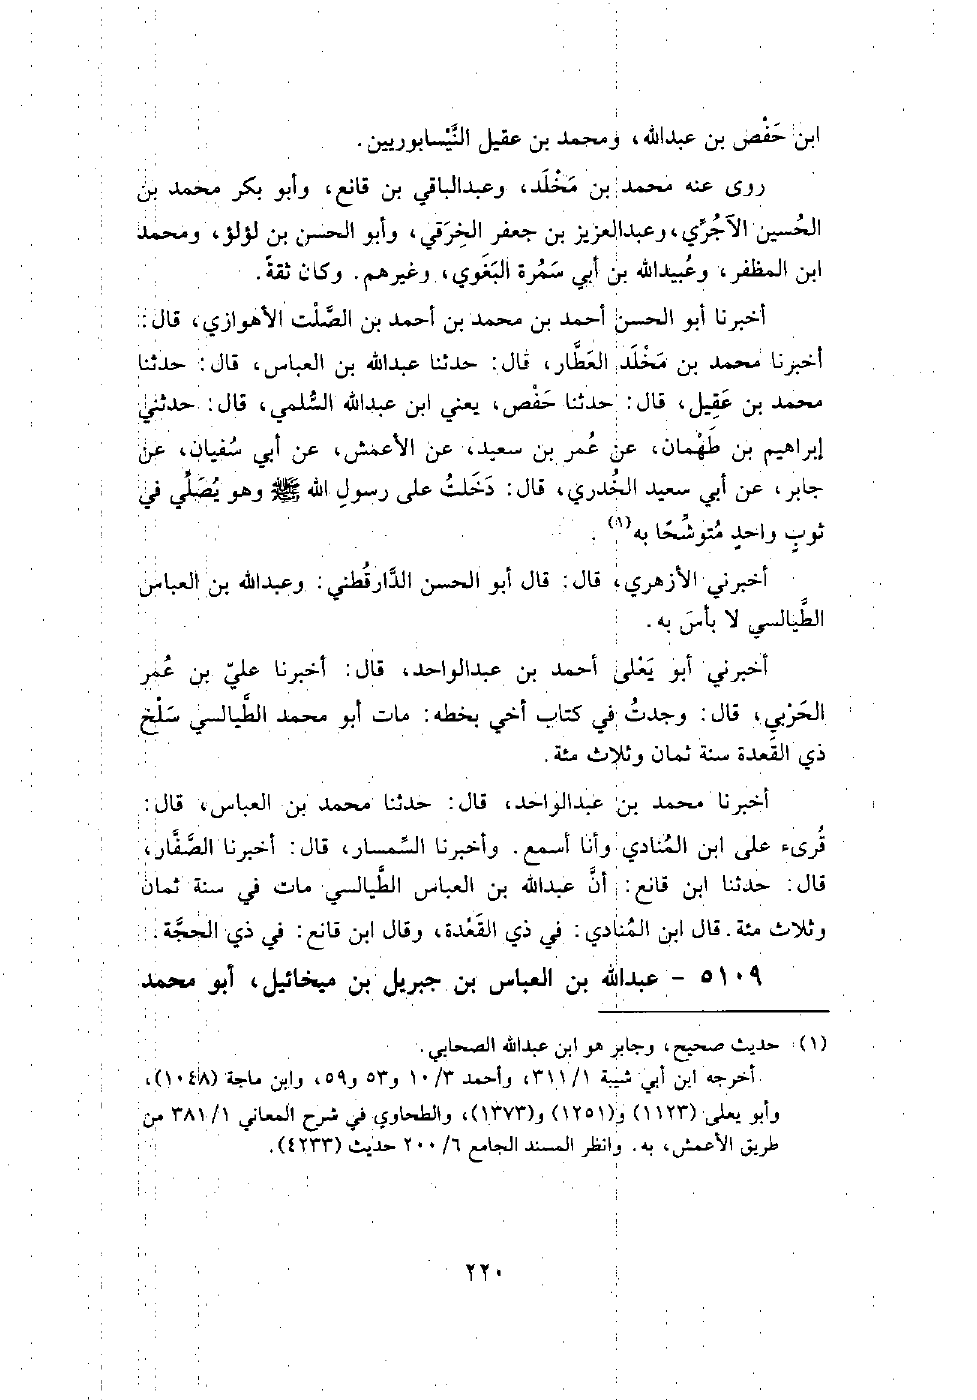 ابن حَفْص بن عبدالله، ومحمد بن عقيل النَّيْسابوريين.
روى عنه محمد بن مَخْلَد، وعبدالباقي بن قانع، وأبو بكر محمد بن
الحُسين الآجُرِّي، وعبدالعزيز بن جعفر الخِرَقي، وأبو الحسن بن لؤلؤ، ومحمد
ابن المظفر، وعُبيدالله بن أبي سَمُرة البَغَوي، وغيرهم. وكان ثقةً.
أخبرنا أبو الحسن أحمد بن محمد بن أحمد بن الصَّلْت الأهوازي، قال:
أخبرنا محمد بن مَخْلَد العَطَّار، قال: حدثنا عبدالله بن العباس، قال: حدثنا
محمد بن عَقِيل، قال: حدثنا حَفْص، يعني ابن عبدالله السُّلمي، قال: حدثني
إبراهيم بن طَهْمان، عن عُمر بن سعيد، عن الأعمش، عن أبي سُفيان، عن
جابر، عن أبي سعيد الخُدري، قال: دَخَلتُ على رسولِ الله ﷺ وهو يُصَلِّي في
ثوبٍ واحدٍ مُتوشِّحًا به(١).
أخبرني الأزهري، قال: قال أبو الحسن الدَّارقُطني: وعبدالله بن العباس
الطَّيالسي لا بأسَ به.
أخبرني أبو يَعْلى أحمد بن عبدالواحد، قال: أخبرنا عليّ بن عُمر
الحَرْبي، قال: وجدتُ في كتاب أخي بخطه: مات أبو محمد الطَّيالسي سَلْخ
ذي القَعدة سنة ثمان وثلاث مئة.
أخبرنا محمد بن عبدالواحد، قال: حدثنا محمد بن العباس، قال:
قُرىء على ابن المُنادي وأنا أسمع. وأخبرنا السِّمسار، قال: أخبرنا الصَّفَّار،
قال: حدثنا ابن قانع: أنَّ عبدالله بن العباس الطَّيالسي مات في سنة ثمان
وثلاث مئة. قال ابن المُنادي: في ذي القَعْدة، وقال ابن قانع: في ذي الحجَّة.
٥١٠٩ - عبدالله بن العباس بن جبريل بن ميخائيل، أبو محمد
(١) حديث صحيح، وجابر هو ابن عبدالله الصحابي.
أخرجه ابن أبي شيبة ١/ ٣١١، وأحمد ٣/ ١٠ و٥٣ و٥٩، وابن ماجة (١٠٤٨)،
وأبو يعلى (١١٢٣) و(١٢٥١) و(١٣٧٣)، والطحاوي في شرح المعاني ١/ ٣٨١ من
طريق الأعمش، به. وانظر المسند الجامع ٦/ ٢٠٠ حديث (٤٢٣٣).
٢٢٠